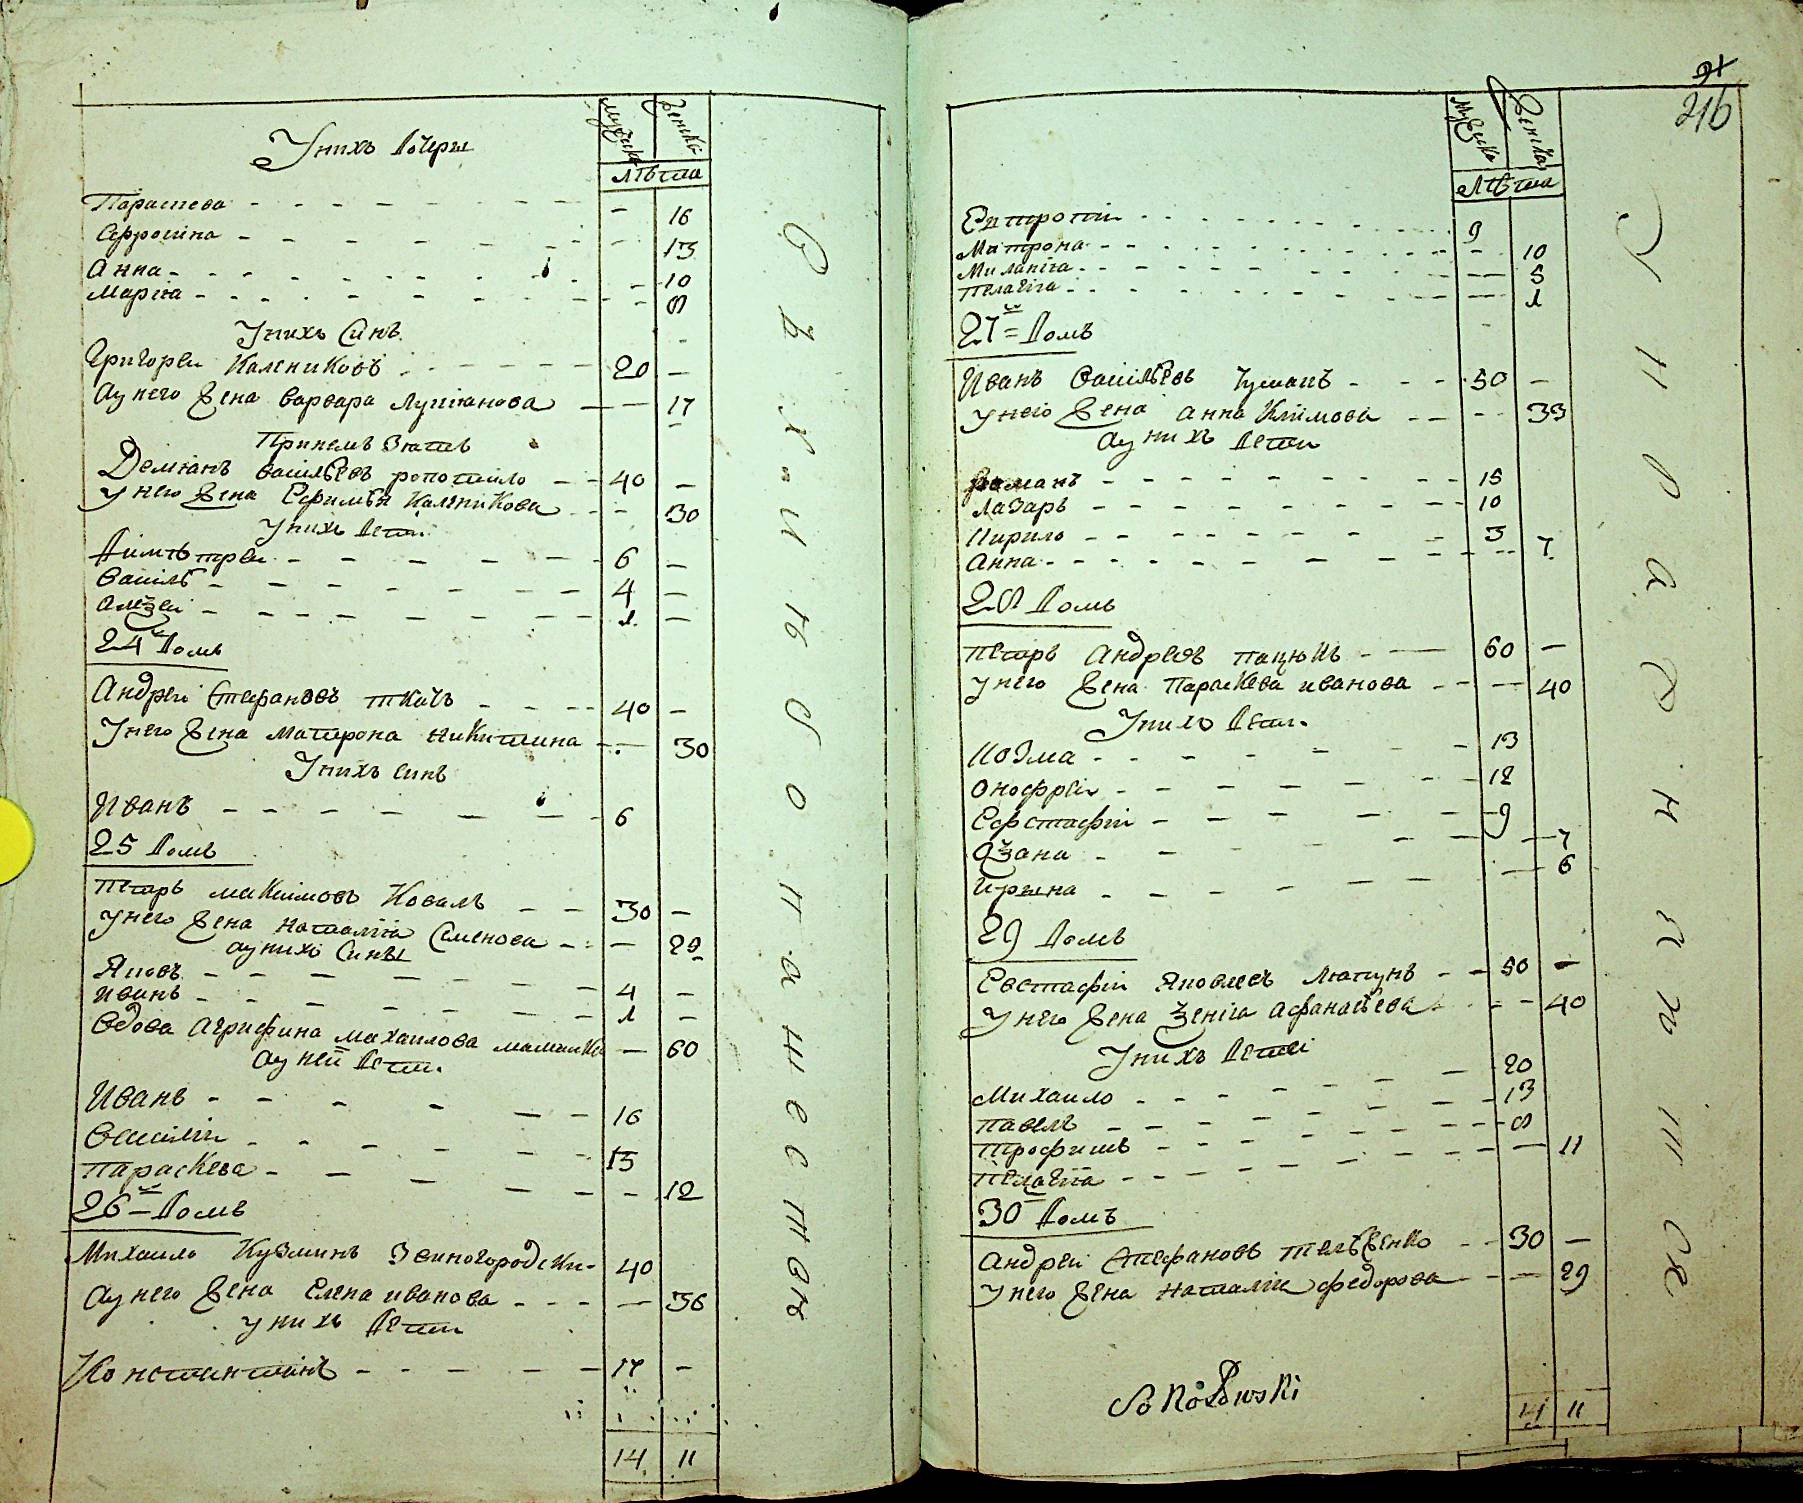 мужска женска
лѣта
Унихъ дочеры
Параскева - - - 16
Єфросина - - - 13
Анна - - - 10
Марѣя - - - 8
Унихъ Синъ
Григорѣй Калениковъ - - - 20 -
Аунего жена варвара Лукіянова - - 17
При немъ Зять
Деміянъ васильевъ - - 40 -
Унего жена Єфимія Каленикова - - 30
Унихъ дети
Димътрѣй - - - 6 -
Василь - - - 4 -
Алеξей - - - 1 -
24й домъ
Андрѣй Стефановъ ткачъ - - - 40 -
Унего жена матрона никитина - - 30
Унихъ синъ
Иванъ - - - 6
25 домъ
Петръ максимовъ Коваль - - 30 -
Унего жена наталѣя Семенова - - 29
аунихъ Сины
Яковъ - - - 4 -
иванъ - - - 1 -
вдова Агрифина михаилова - 60
ауней Дети
Иванъ - - - 16
Василій - - - 13
Параскева - - - 12
26й домъ
Михаило Кузминъ Звиногородски - 40
Аунего жена Елена иванова - - - 36
унихъ Дети
Константинъ - - - 17 -
14 11
Свхи и ѣбо панеством
21
216
мужска женска
лѣта
- - - 9
Матрона - - - 10
Миланія - - - 5
Пелагія - - - 1
27й домъ
Иванъ васильевъ Чумакъ - - - 50 -
унего жена анна Климова - - - 33
аунихъ Дети
Романъ - - - 15
Лазаръ - - - 10
Кирило - - - 3
Анна - - - 7
28 домъ
Петръ Андреевъ пацюкъ - - 60 -
унего жена Параскева иванова - - 40
Унихъ Дети
Козма - - - 13
Онофрѣй - - - 12
Єфстафій - - - 9
Оξана - - - 7
Ирина - - - 6
29 домъ
Евстафій Яковлевъ Ляпунъ - - 50 -
унего жена ξенія афанасьева - - 40
Унихъ Дети
Михаило - - - 20
Павелъ - - - 13
Трофимъ - - - 8
Пелагія - - - 11
30й домъ
Андрѣй Стефановъ - - 30 -
унего жена наталія федорова - - 29
Sokołowski
14 11